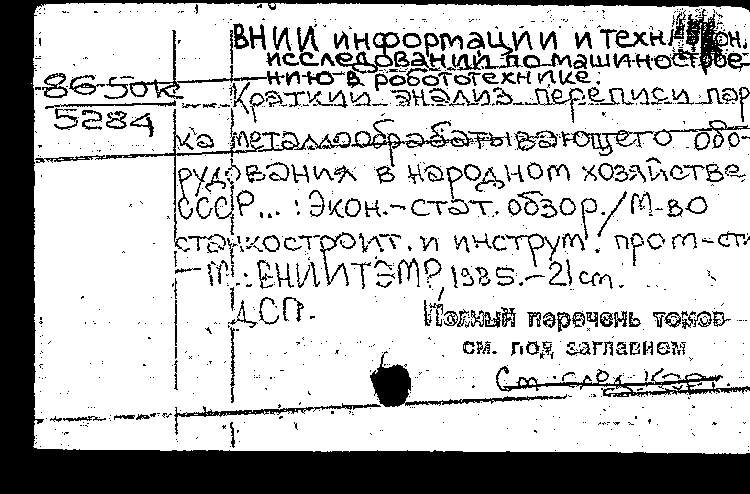 ВНИИ информации и техн.-экон.
исследований по машинострое-
нию и робототехнике.
86-5ок
5284
Краткий анализ переписи пар
ка металлообрабатывающего обо-
рудования в народном хозяйстве
СССР... : Экон.-стат. обзор. / М-во
станкостроит. и инструм. пром-сти
— М.: ВНИИТЭМР, 1985. — 21 см.
ДСП.
Полный перечень томов
см. под заглавием
См. след. карт.